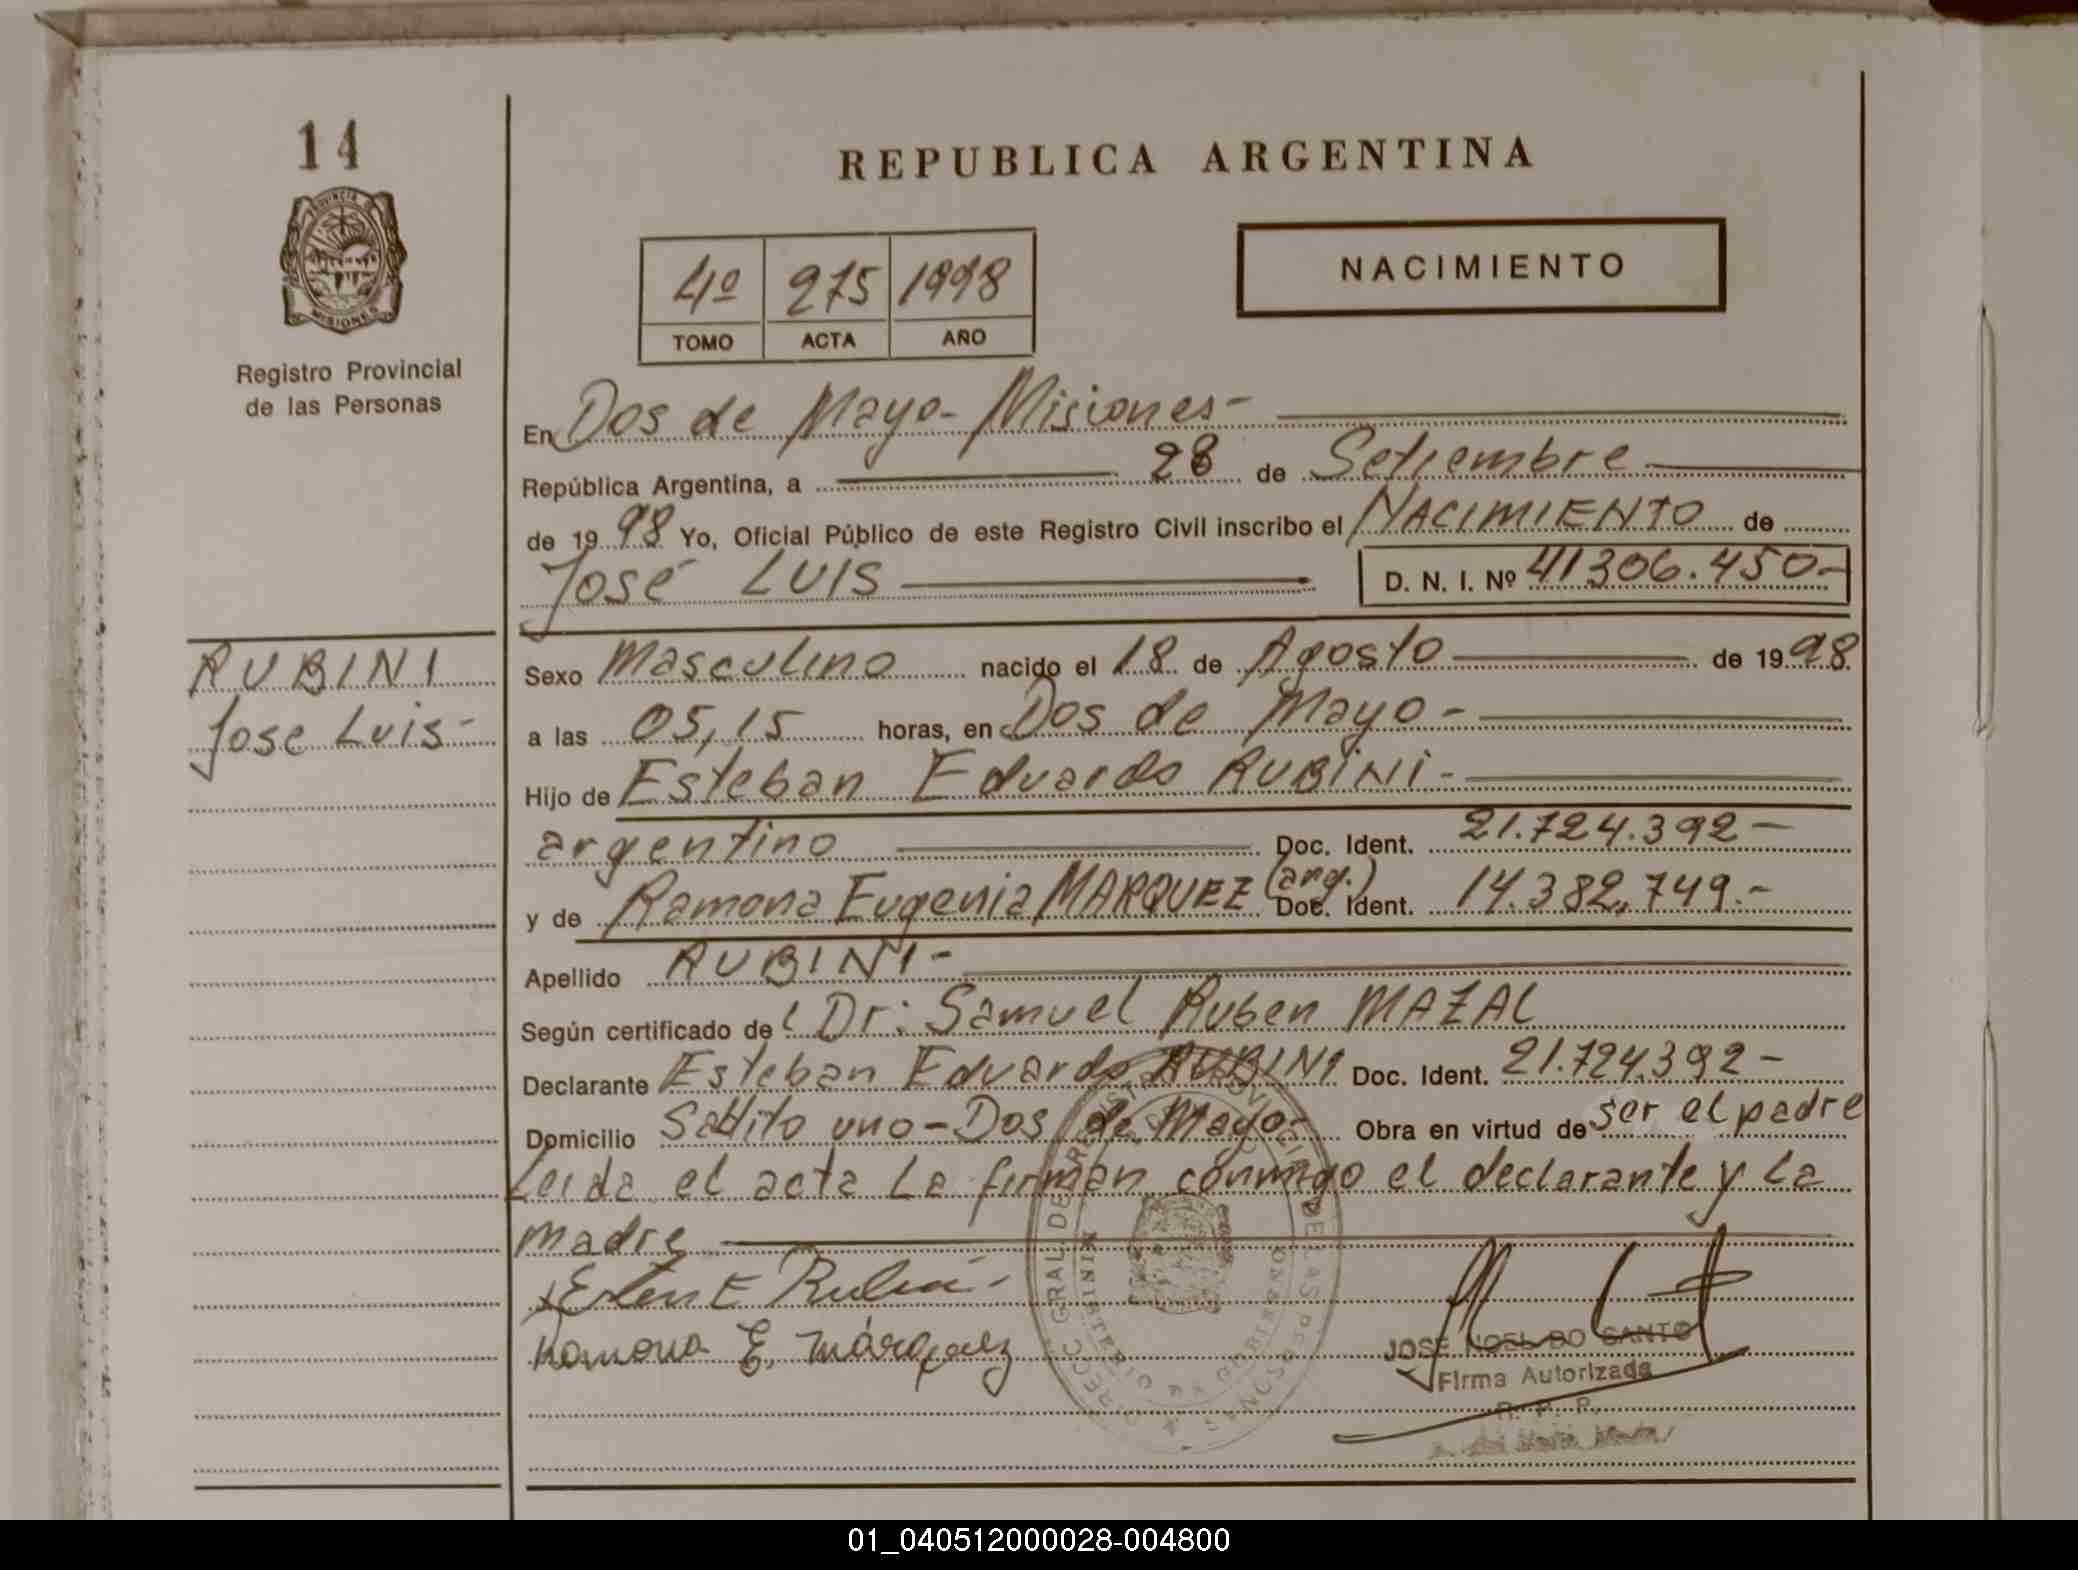 14
PROVINCIA DE
MISIONES
Registro Provincial
de las Personas
REPUBLICA ARGENTINA
4º 275 1998
TOMO ACTA AÑO
NACIMIENTO
En Dos de Mayo- Misiones-
República Argentina, a 28 de Setiembre
de 1998 Yo, Oficial Público de este Registro Civil inscribo el NACIMIENTO de
José LUIS D. N. I. Nº 41306.450-
RUBINI
Jose Luis-
Sexo Masculino nacido el 18 de Agosto de 1998
a las 05,15 horas, en Dos de Mayo-
Hijo de Esteban Eduardo RUBINI-
argentino Doc. Ident. 21.724.392-
y de Ramona Eugenia MARQUEZ (arg.) Doc. Ident. 14.382.749.-
Apellido RUBINI-
Según certificado de Dr: Samuel Ruben MAZAL
Declarante Esteban Eduardo RUBINI Doc. Ident. 21.724.392-
Domicilio Saltito uno-Dos de Mayo- Obra en virtud de ser el padre
Leida el acta La firman conmigo el declarante y La
madre
Ramona E. Márquez
DIRECC. GRAL. DE REGISTRO PROVINCIAL DE LAS PERSONAS
MINISTERIO DE GOBIERNO
JOSE NOEL DO SANTO
Firma Autorizada
R. P. P.
01_040512000028-004800